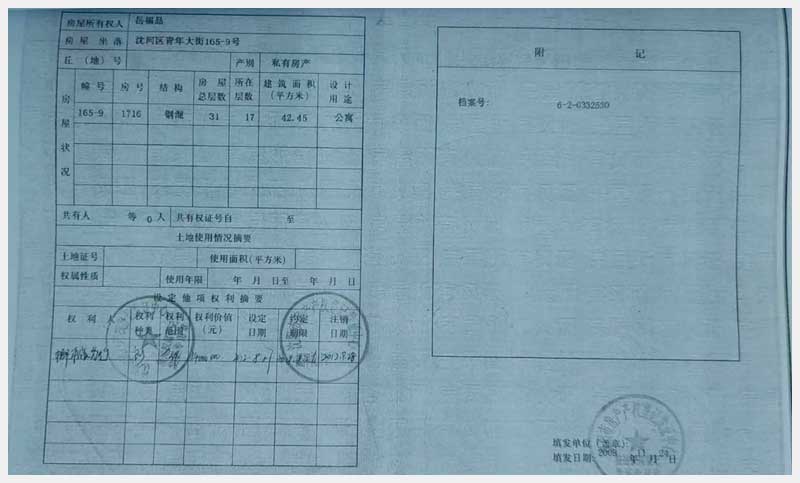 房屋所有权人 岳福晶
房屋坐落 沈河区青年大街165-9号
丘（地）号 产别 私有房产
房屋状况
幢号 房号 结构 房屋总层数 所在层数 建筑面积（平方米） 设计用途
165-9 1716 钢混 31 17 42.45 公寓
共有人 等 0 人 共有权证号自 至
土地使用情况摘要
土地证号 使用面积(平方米)
权属性质 使用年限 年 月 日至 年 月 日
设定他项权利摘要
权利人 权利种类 权利范围 权利价值（元） 设定日期 约定期限 注销日期
附 记
档案号: 6-2-0332530
填发单位（盖章）
填发日期: 2008 年 11 月 24 日